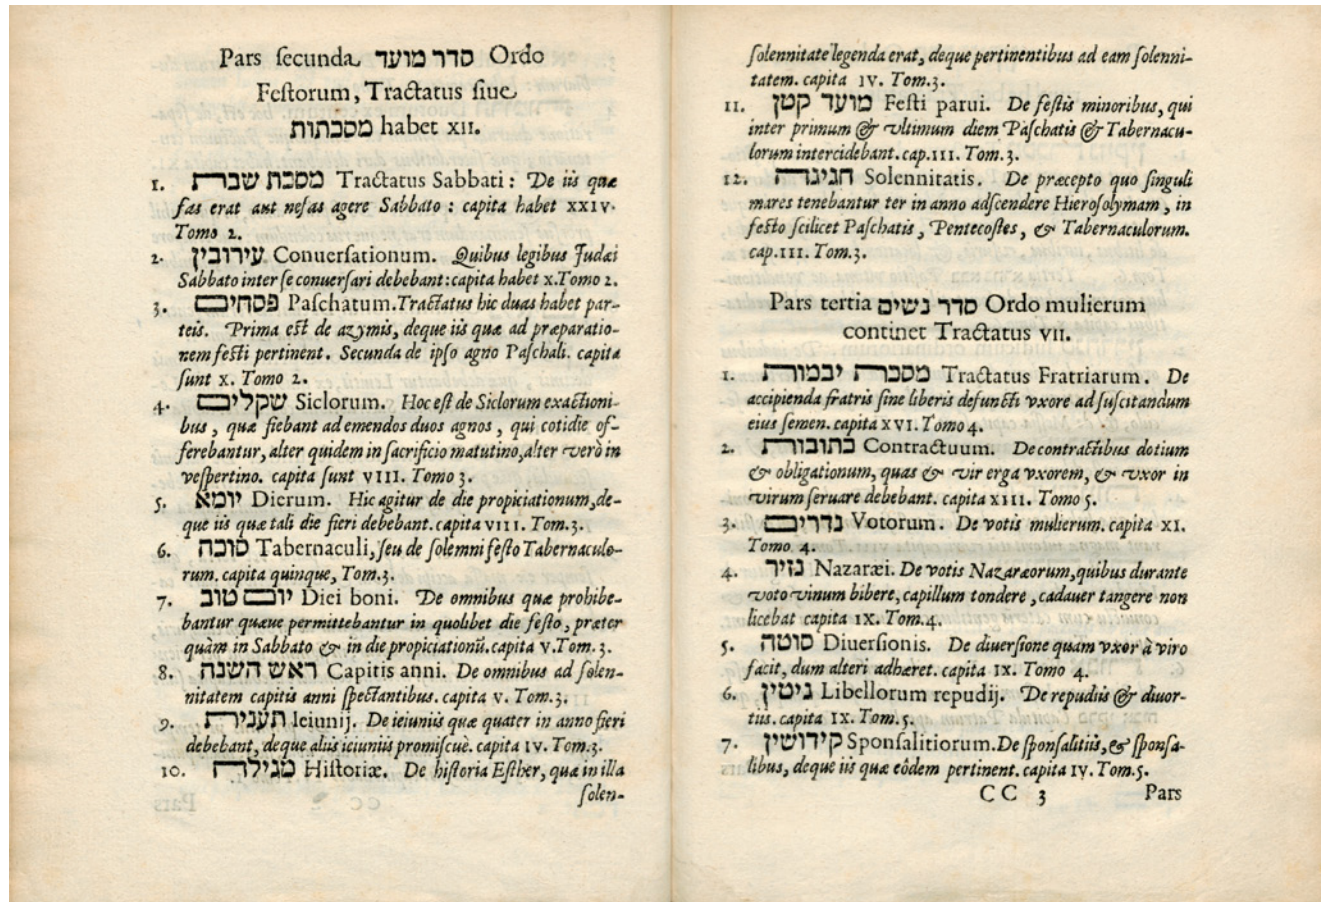 Pars ſecunda סדר מועד Ordo
Feſtorum, Tractatus ſiue
מסכתות habet XII.
1. מסכת שברת Tractatus Sabbati : De iis quæ
fas erat aut nefas agere Sabbato : capita habet XXIV.
Tomo 2.
2. עירובין Conuerſationum. Quibus legibus Judæi
Sabbato inter ſe conuerſari debebant : capita habet X. Tomo 2.
3. פסחים Paſchatum. Tractatus hic duas habet par-
teis. Prima eſt de azymis, deque iis quæ ad præparatio-
nem feſti pertinent. Secunda de ipſo agno Paſchali. capita
ſunt X. Tomo 2.
4. שקלים Siclorum. Hoc eſt de Siclorum exactioni-
bus, quæ fiebant ad emendos duos agnos, qui cotidie of-
ferebantur, alter quidem in ſacrificio matutino, alter verò in
veſpertino. capita ſunt VIII. Tomo 3.
5. יומא Dierum. Hic agitur de die propiciationum, de-
que iis quæ tali die fieri debebant. capita VIII. Tom.3.
6. סוכה Tabernaculi, ſeu de ſolemni feſto Tabernaculo-
rum. capita quinque, Tom.3.
7. יום טוב Diei boni. De omnibus quæ prohibe-
bantur quæue permittebantur in quolibet die feſto, præter
quàm in Sabbato & in die propiciationũ. capita V. Tom.3.
8. ראש השנה Capitis anni. De omnibus ad ſolen-
nitatem capitis anni ſpectantibus. capita V. Tom.3.
9. תענירת Ieiunij. De ieiuniis quæ quater in anno fieri
debebant, deque aliis ieiuniis promiſcuè. capita IV. Tom.3.
10. מגילרה Hiſtoriæ. De hiſtoria Eſther, quæ in illa
ſolen-
ſolennitate legenda erat, deque pertinentibus ad eam ſolenni-
tatem. capita IV. Tom.3.
11. מועד קטן Feſti parui. De feſtis minoribus, qui
inter primum & vltimum diem Paſchatis & Tabernacu-
lorum intercidebant. cap.III. Tom.3.
12. חגיגרה Solennitatis. De præcepto quo ſinguli
mares tenebantur ter in anno adſcendere Hieroſolymam, in
feſto ſcilicet Paſchatis, Pentecoſtes, & Tabernaculorum.
cap.III. Tom.3.
Pars tertia סדר נשים Ordo mulierum
continet Tractatus VII.
1. מסכרת יבמורת Tractatus Fratriarum. De
accipienda fratris ſine liberis defuncti vxore ad ſuſcitandum
eius ſemen. capita XVI. Tomo 4.
2. כתובורת Contractuum. De contractibus dotium
& obligationum, quas & vir erga vxorem, & vxor in
virum ſeruare debebant. capita XIII. Tomo 5.
3. נדרים Votorum. De votis mulierum. capita XI.
Tomo 4.
4. נזיר Nazaræi. De votis Nazaræorum, quibus durante
voto vinum bibere, capillum tondere, cadauer tangere non
licebat capita IX. Tom.4.
5. סוטה Diuerſionis. De diuerſione quam vxor à viro
facit, dum alteri adhæret. capita IX. Tomo 4.
6. גיטין Libellorum repudij. De repudiis & diuor-
tiis. capita IX. Tom.5.
7. קידושין Sponſalitiorum. De ſponſalitiis, & ſponſa-
libus, deque iis quæ eôdem pertinent. capita IV. Tom.5.
CC 3 Pars